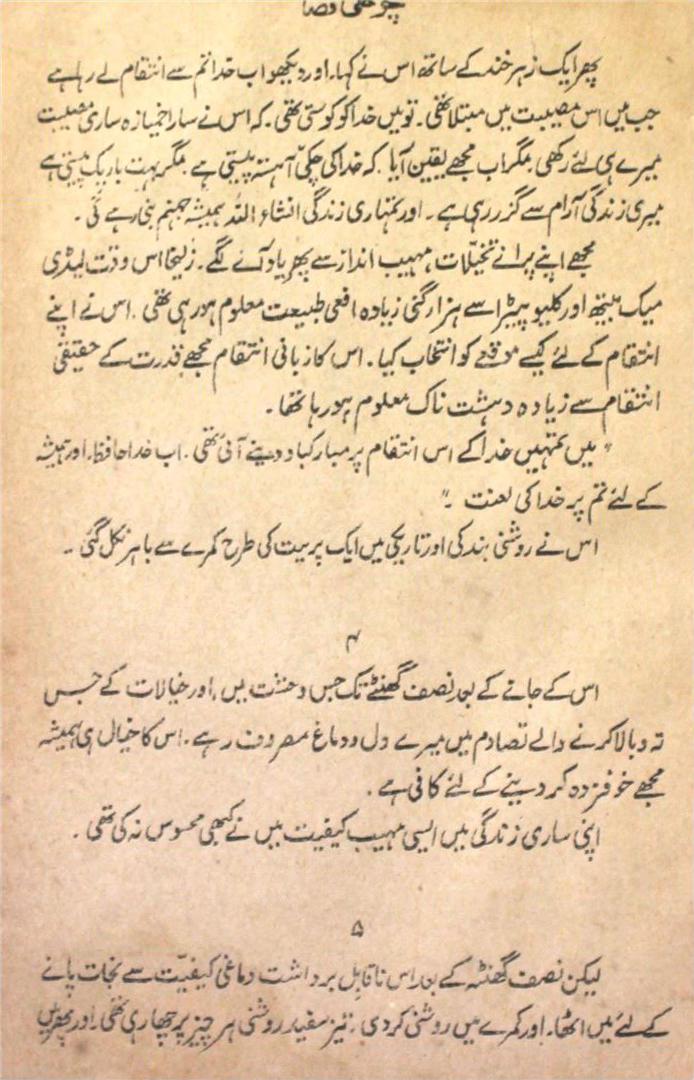 پھر ایک زہر خند کے ساتھ اس نے کہا۔ اور دیکھو اب خدا تم سے انتقام لے رہا ہے
جب میں اس مصیبت میں مبتلا تھی۔ تو میں خدا کو کوستی تھی۔ کہ اس نے سارا خمیازہ ساری مصیبت
میرے ہی لئے رکھی۔ مگر اب مجھے یقین آیا۔ کہ خدا کی چکی آہستہ پیستی ہے۔ مگر بہت باریک پیستی ہے
میری زندگی آرام سے گزر رہی ہے۔ اور تمہاری زندگی انشاء اللہ ہمیشہ جہنم بنی رہے گی۔
مجھے اپنے پرانے تخیلات، مہیب انداز سے پھر یاد آنے لگے۔ زلیخا اس وقت لیڈی
میک بیتھ اور کلیو پیٹرا سے ہزار گنی زیادہ افعی طبیعت معلوم ہو رہی تھی۔ اس نے اپنے
انتقام کے لئے کیسے موقعے کو انتخاب کیا۔ اس کا زبانی انتقام مجھے قدرت کے حقیقی
انتقام سے زیادہ دہشت ناک معلوم ہو رہا تھا۔
"میں تمہیں خدا کے اس انتقام پر مبارکباد دینے آئی تھی۔ اب خدا حافظ۔ اور ہمیشہ
کے لئے تم پر خدا کی لعنت ۔"
اس نے روشنی بند کی اور تاریکی میں ایک پریت کی طرح کمرے سے باہر نکل گئی ۔۔
۴
اس کے جانے کے بعد نصف گھنٹے تک جس وحشت میں، اور خیالات کے جس
تہ و بالا کرنے والے تصادم میں میرے دل و دماغ مصروف رہے۔ اس کا خیال ہی ہمیشہ
مجھے خوفزدہ کر دینے کے لئے کافی ہے۔
اپنی ساری زندگی میں ایسی مہیب کیفیت میں نے کبھی محسوس نہ کی تھی۔
۵
لیکن نصف گھنٹہ کے بعد اس ناقابل برداشت دماغی کیفیّت سے نجات پانے
کے لئے میں اٹھا۔ اور کمرے میں روشنی کر دی۔ تیز سفید روشنی ہر چیز پر چھا رہی تھی۔ اور پھر میں